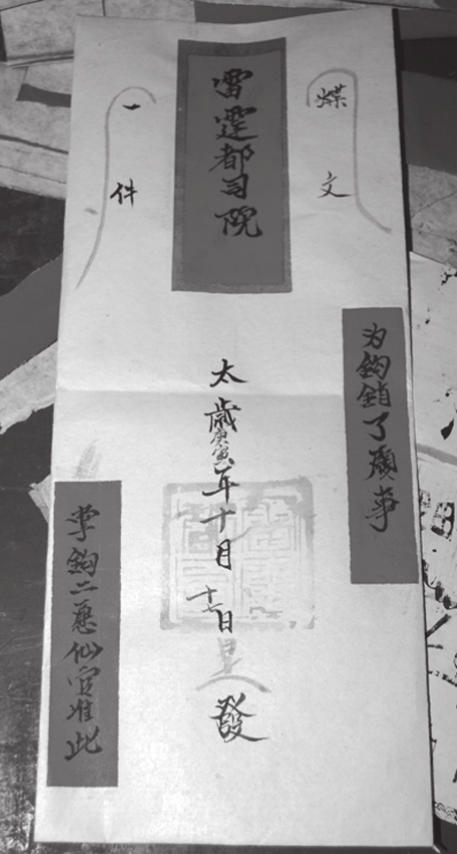 牒文
为鈎銷了願事
雷霆都司院
太歲庚寅年十月十七日發
一件
掌鈎二愿仙官准此